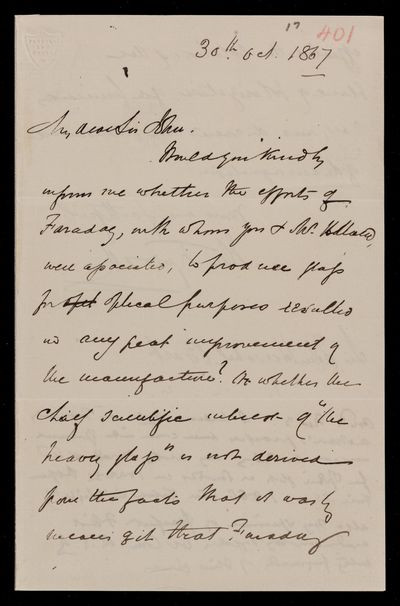 17 401
30th Oct. 1867
My dear Sir John.
Would you kindly
inform me whether the efforts of
Faraday, with whom you & Mr.
were associated, to produce glass
for optical purposes resulted
in any great improvement of
the manufacture? Or whether the
chief scientific interest of "the
heavy glass" is not derived
from the facts that it was by
means of it that Faraday